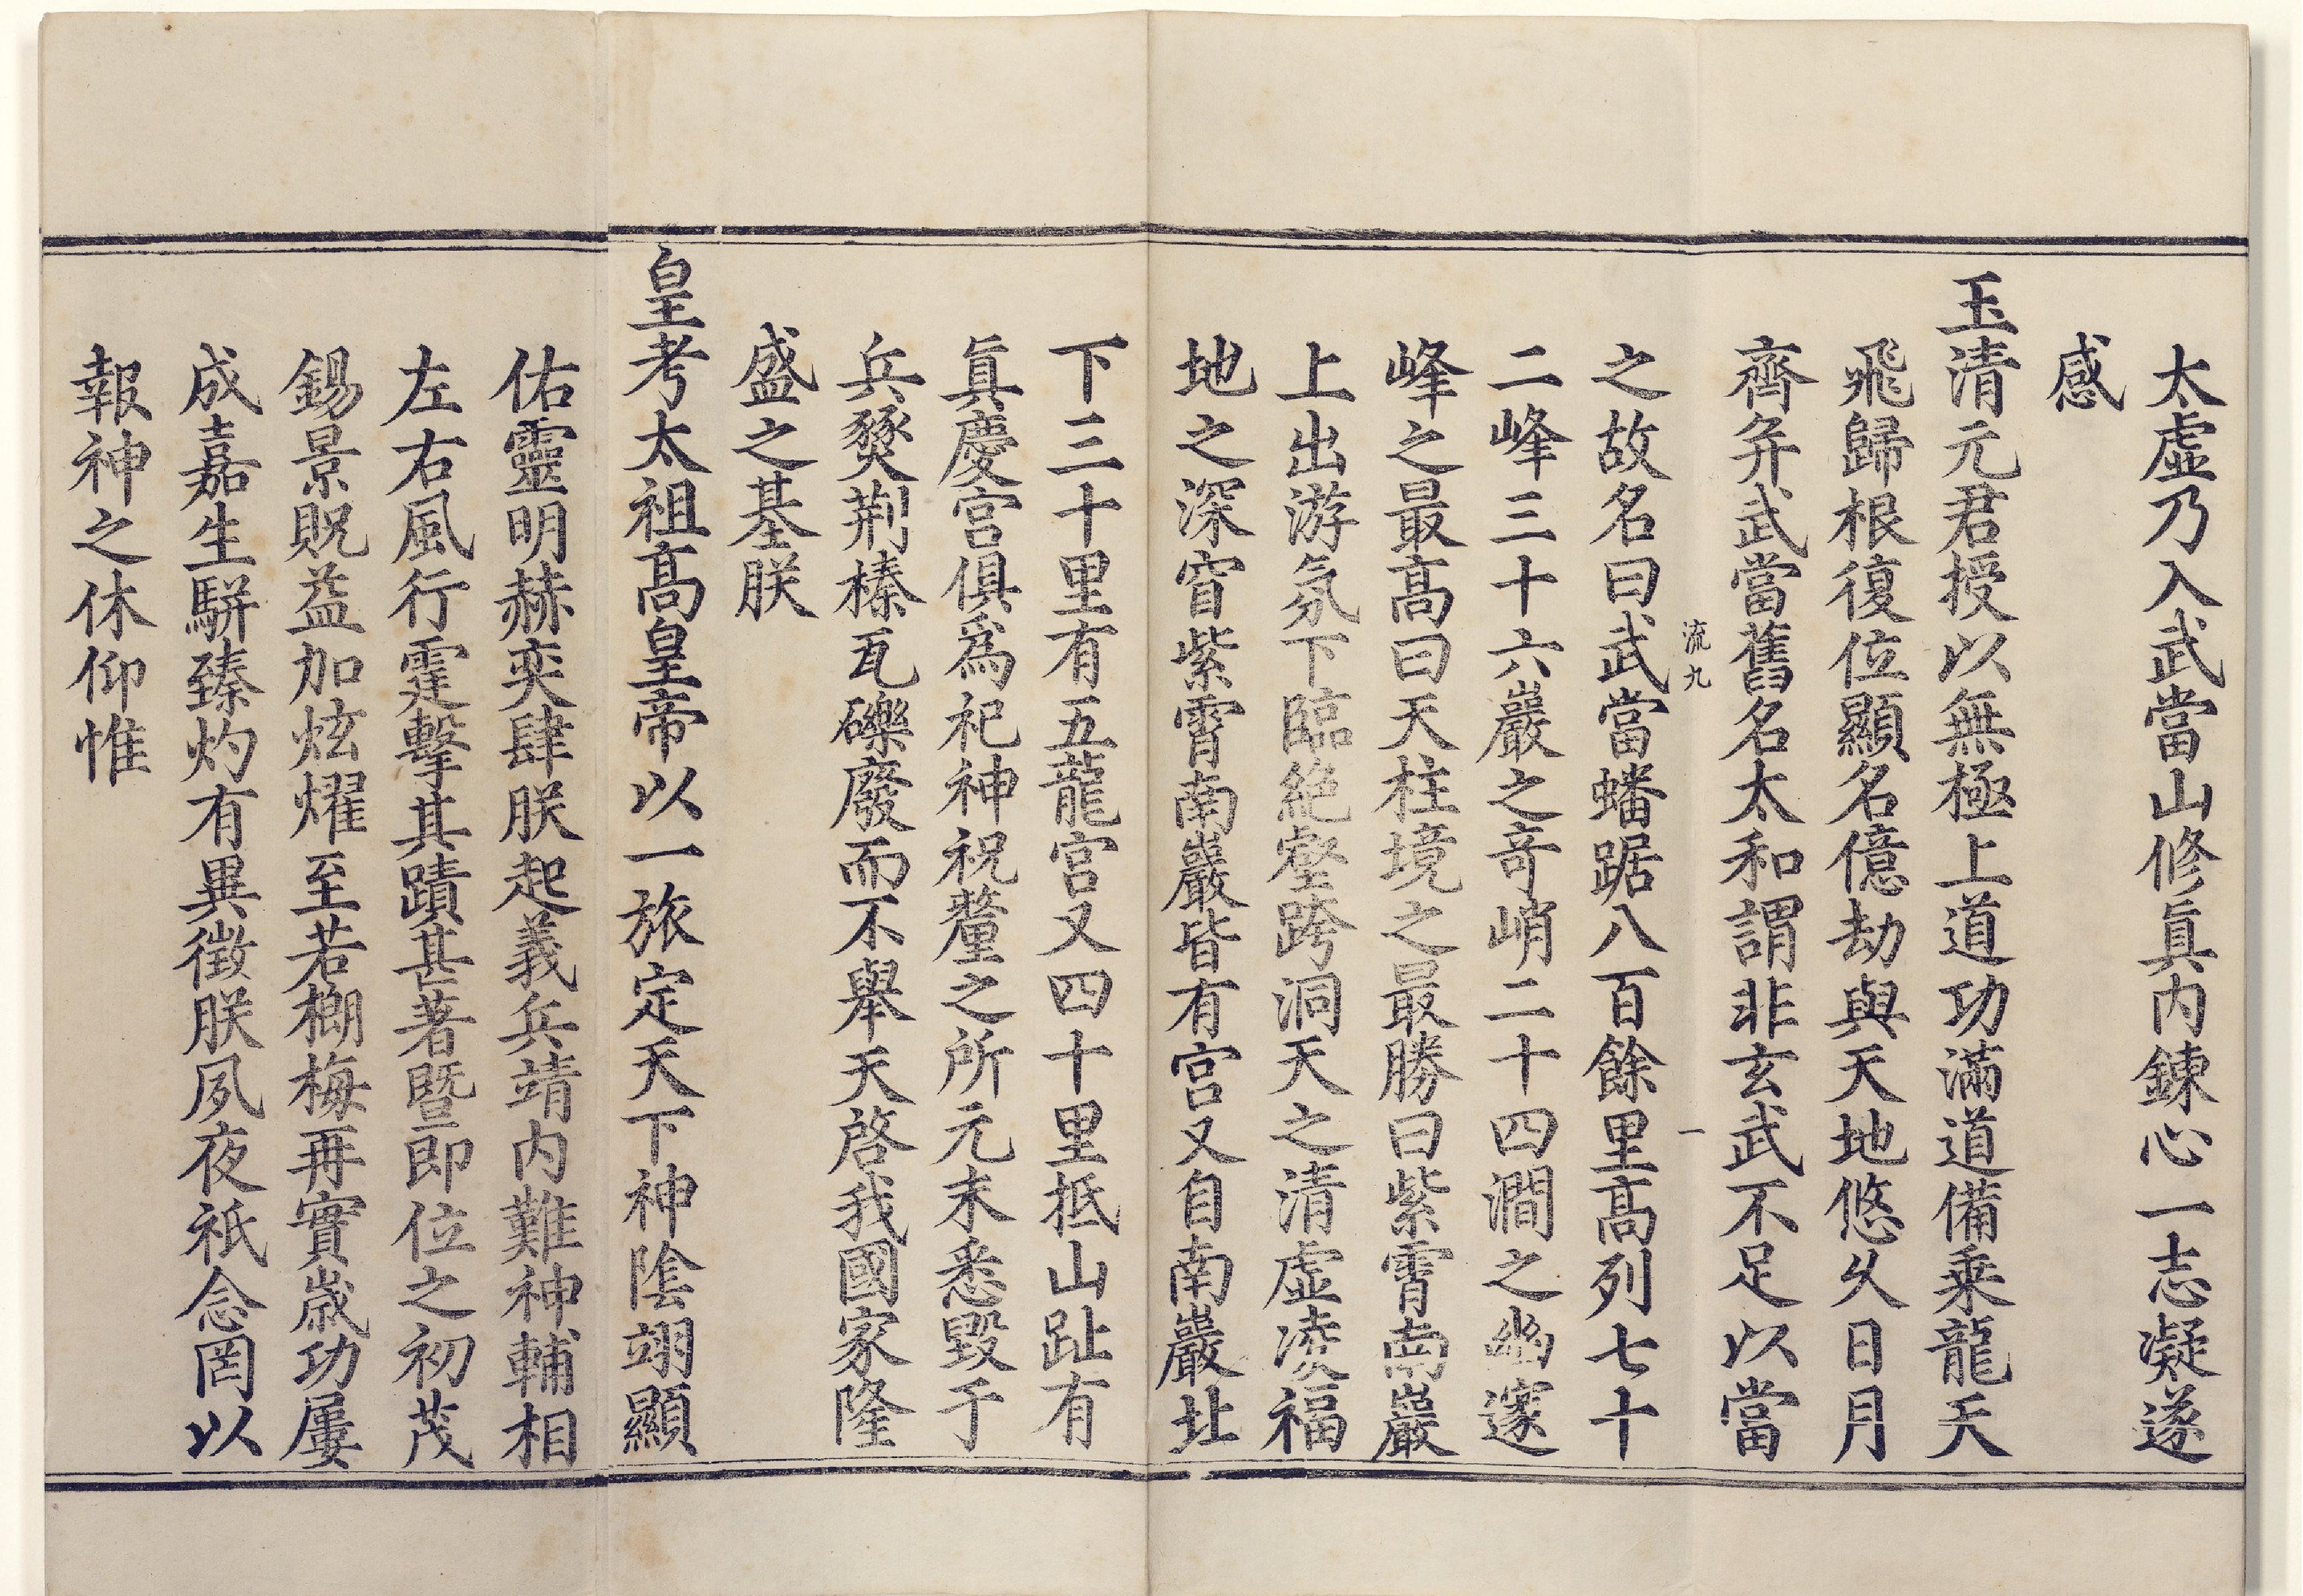 太虛乃入武當山修眞内鍊心一志凝遂
感
玉清元君授以無極上道功滿道備乗龍天
飛歸根復位顯名億劫與天地悠久日月
齊并武當舊名太和謂非玄武不足以當
流九
一
之故名曰武當蟠踞八百餘里髙列七十
二峰三十六巖之竒峭二十四澗之幽邃
峰之最髙曰天柱境之最勝曰紫霄南巖
上出游氛下臨絶壑跨洞天之清虛凌福
地之深窅紫霄南巖皆有宫又自南巖北
下三十里有五龍宫又四十里抵山趾有
眞慶宫俱爲祀神祝釐之所元末悉毁于
兵燹荆榛瓦礫廢而不舉天啓我國家隆
盛之基朕
皇考太祖髙皇帝以一旅定天下神隂翊顯
佑靈明赫奕肆朕起義兵靖内難神輔相
左右風行霆擊其蹟甚著曁即位之初茂
錫景貺益加炫燿至若榔梅再實嵗功屢
成嘉生駢臻灼有異徵朕夙夜祇念罔以
報神之休仰惟